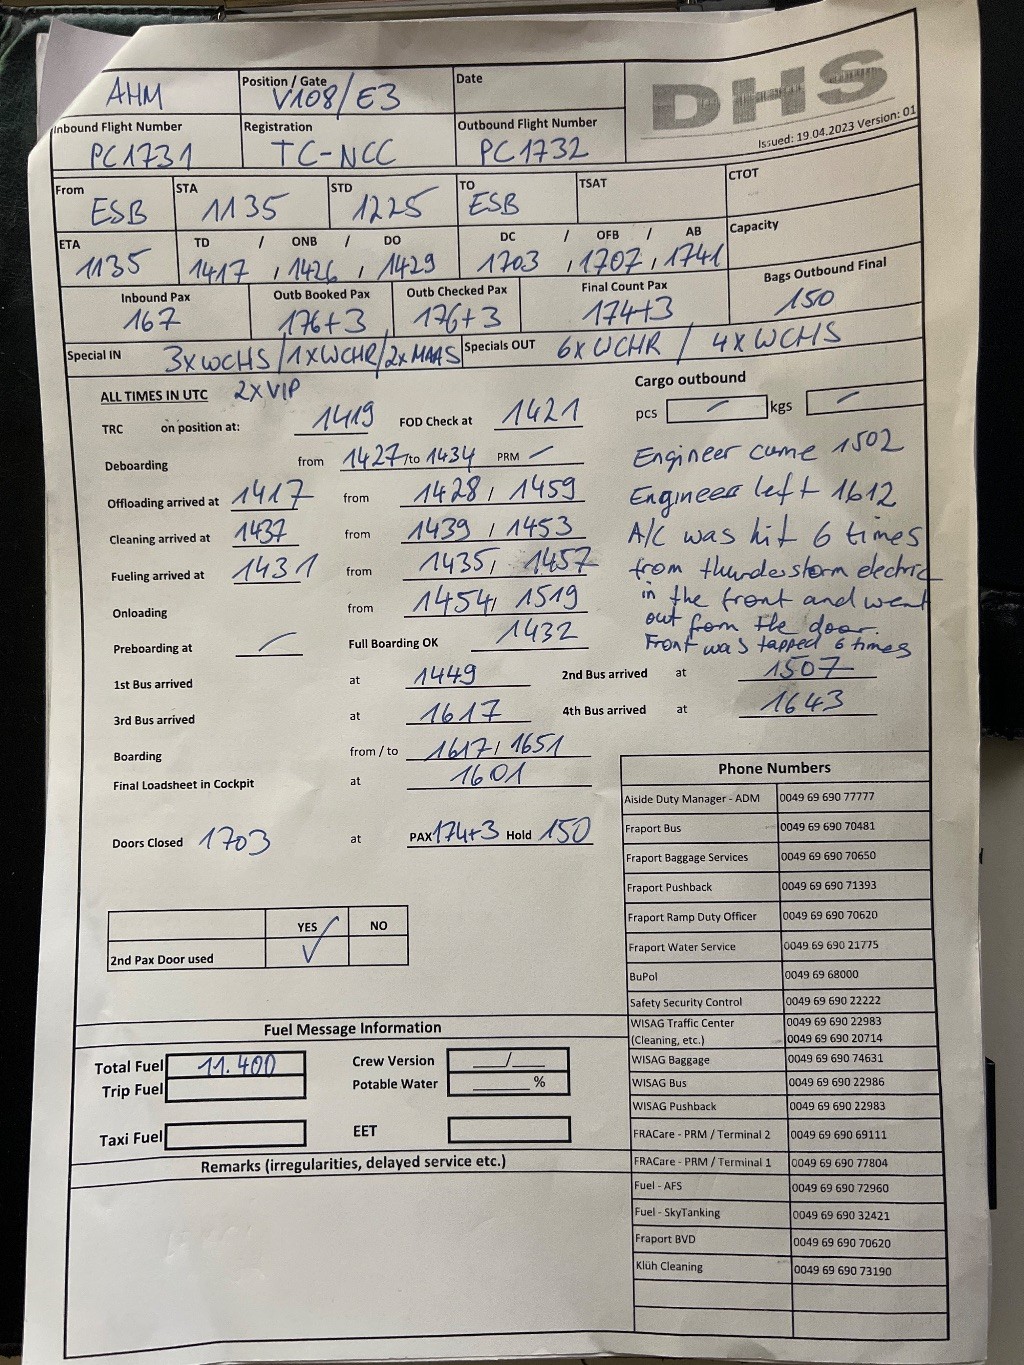 AHM
Position / Gate
V108/E3
Date
DHS
Issued: 19.04.2023 Version: 01
Inbound Flight Number
PC1731
Registration
TC-NCC
Outbound Flight Number
PC1732
From
ESB
STA
1135
STD
1225
TO
ESB
TSAT
CTOT
ETA
1135
TD / ONB / DO
1417 , 1426 , 1429
DC / OFB / AB
1703 , 1707 , 1741
Capacity
Inbound Pax
167
Outb Booked Pax
176+3
Outb Checked Pax
176+3
Final Count Pax
174+3
Bags Outbound Final
150
Special IN 3xWCHS/1xWCHR/2xMAAS
Specials OUT 6xWCHR / 4xWCHS
ALL TIMES IN UTC 2xVIP
Cargo outbound
pcs – kgs –
TRC on position at: 1419 FOD Check at 1421
Deboarding from 1427/to 1434 PRM –
Offloading arrived at 1417 from 1428, 1459
Cleaning arrived at 1437 from 1439, 1453
Fueling arrived at 1431 from 1435, 1457
Onloading from 1454, 1519
Preboarding at – Full Boarding OK 1432
Engineer came 1502
Engineer left 1612
A/C was hit 6 times
from thunderstorm electric
in the front and went
out from the door.
Front was tapped 6 times
1st Bus arrived at 1449 2nd Bus arrived at 1507
3rd Bus arrived at 1617 4th Bus arrived at 1643
Boarding from / to 1617, 1651
Final Loadsheet in Cockpit at 1601
Doors Closed 1703 at PAX 174+3 Hold 150
YES NO
2nd Pax Door used ✓
Phone Numbers
Aiside Duty Manager - ADM 0049 69 690 77777
Fraport Bus 0049 69 690 70481
Fraport Baggage Services 0049 69 690 70650
Fraport Pushback 0049 69 690 71393
Fraport Ramp Duty Officer 0049 69 690 70620
Fraport Water Service 0049 69 690 21775
BuPol 0049 69 68000
Safety Security Control 0049 69 690 22222
WISAG Traffic Center 0049 69 690 22983
(Cleaning, etc.) 0049 69 690 20714
WISAG Baggage 0049 69 690 74631
WISAG Bus 0049 69 690 22986
WISAG Pushback 0049 69 690 22983
FRACare - PRM / Terminal 2 0049 69 690 69111
FRACare - PRM / Terminal 1 0049 69 690 77804
Fuel - AFS 0049 69 690 72960
Fuel - SkyTanking 0049 69 690 32421
Fraport BVD 0049 69 690 70620
Klüh Cleaning 0049 69 690 73190
Fuel Message Information
Total Fuel 11.400
Trip Fuel
Taxi Fuel
Crew Version ___/___
Potable Water ______ %
EET
Remarks (irregularities, delayed service etc.)